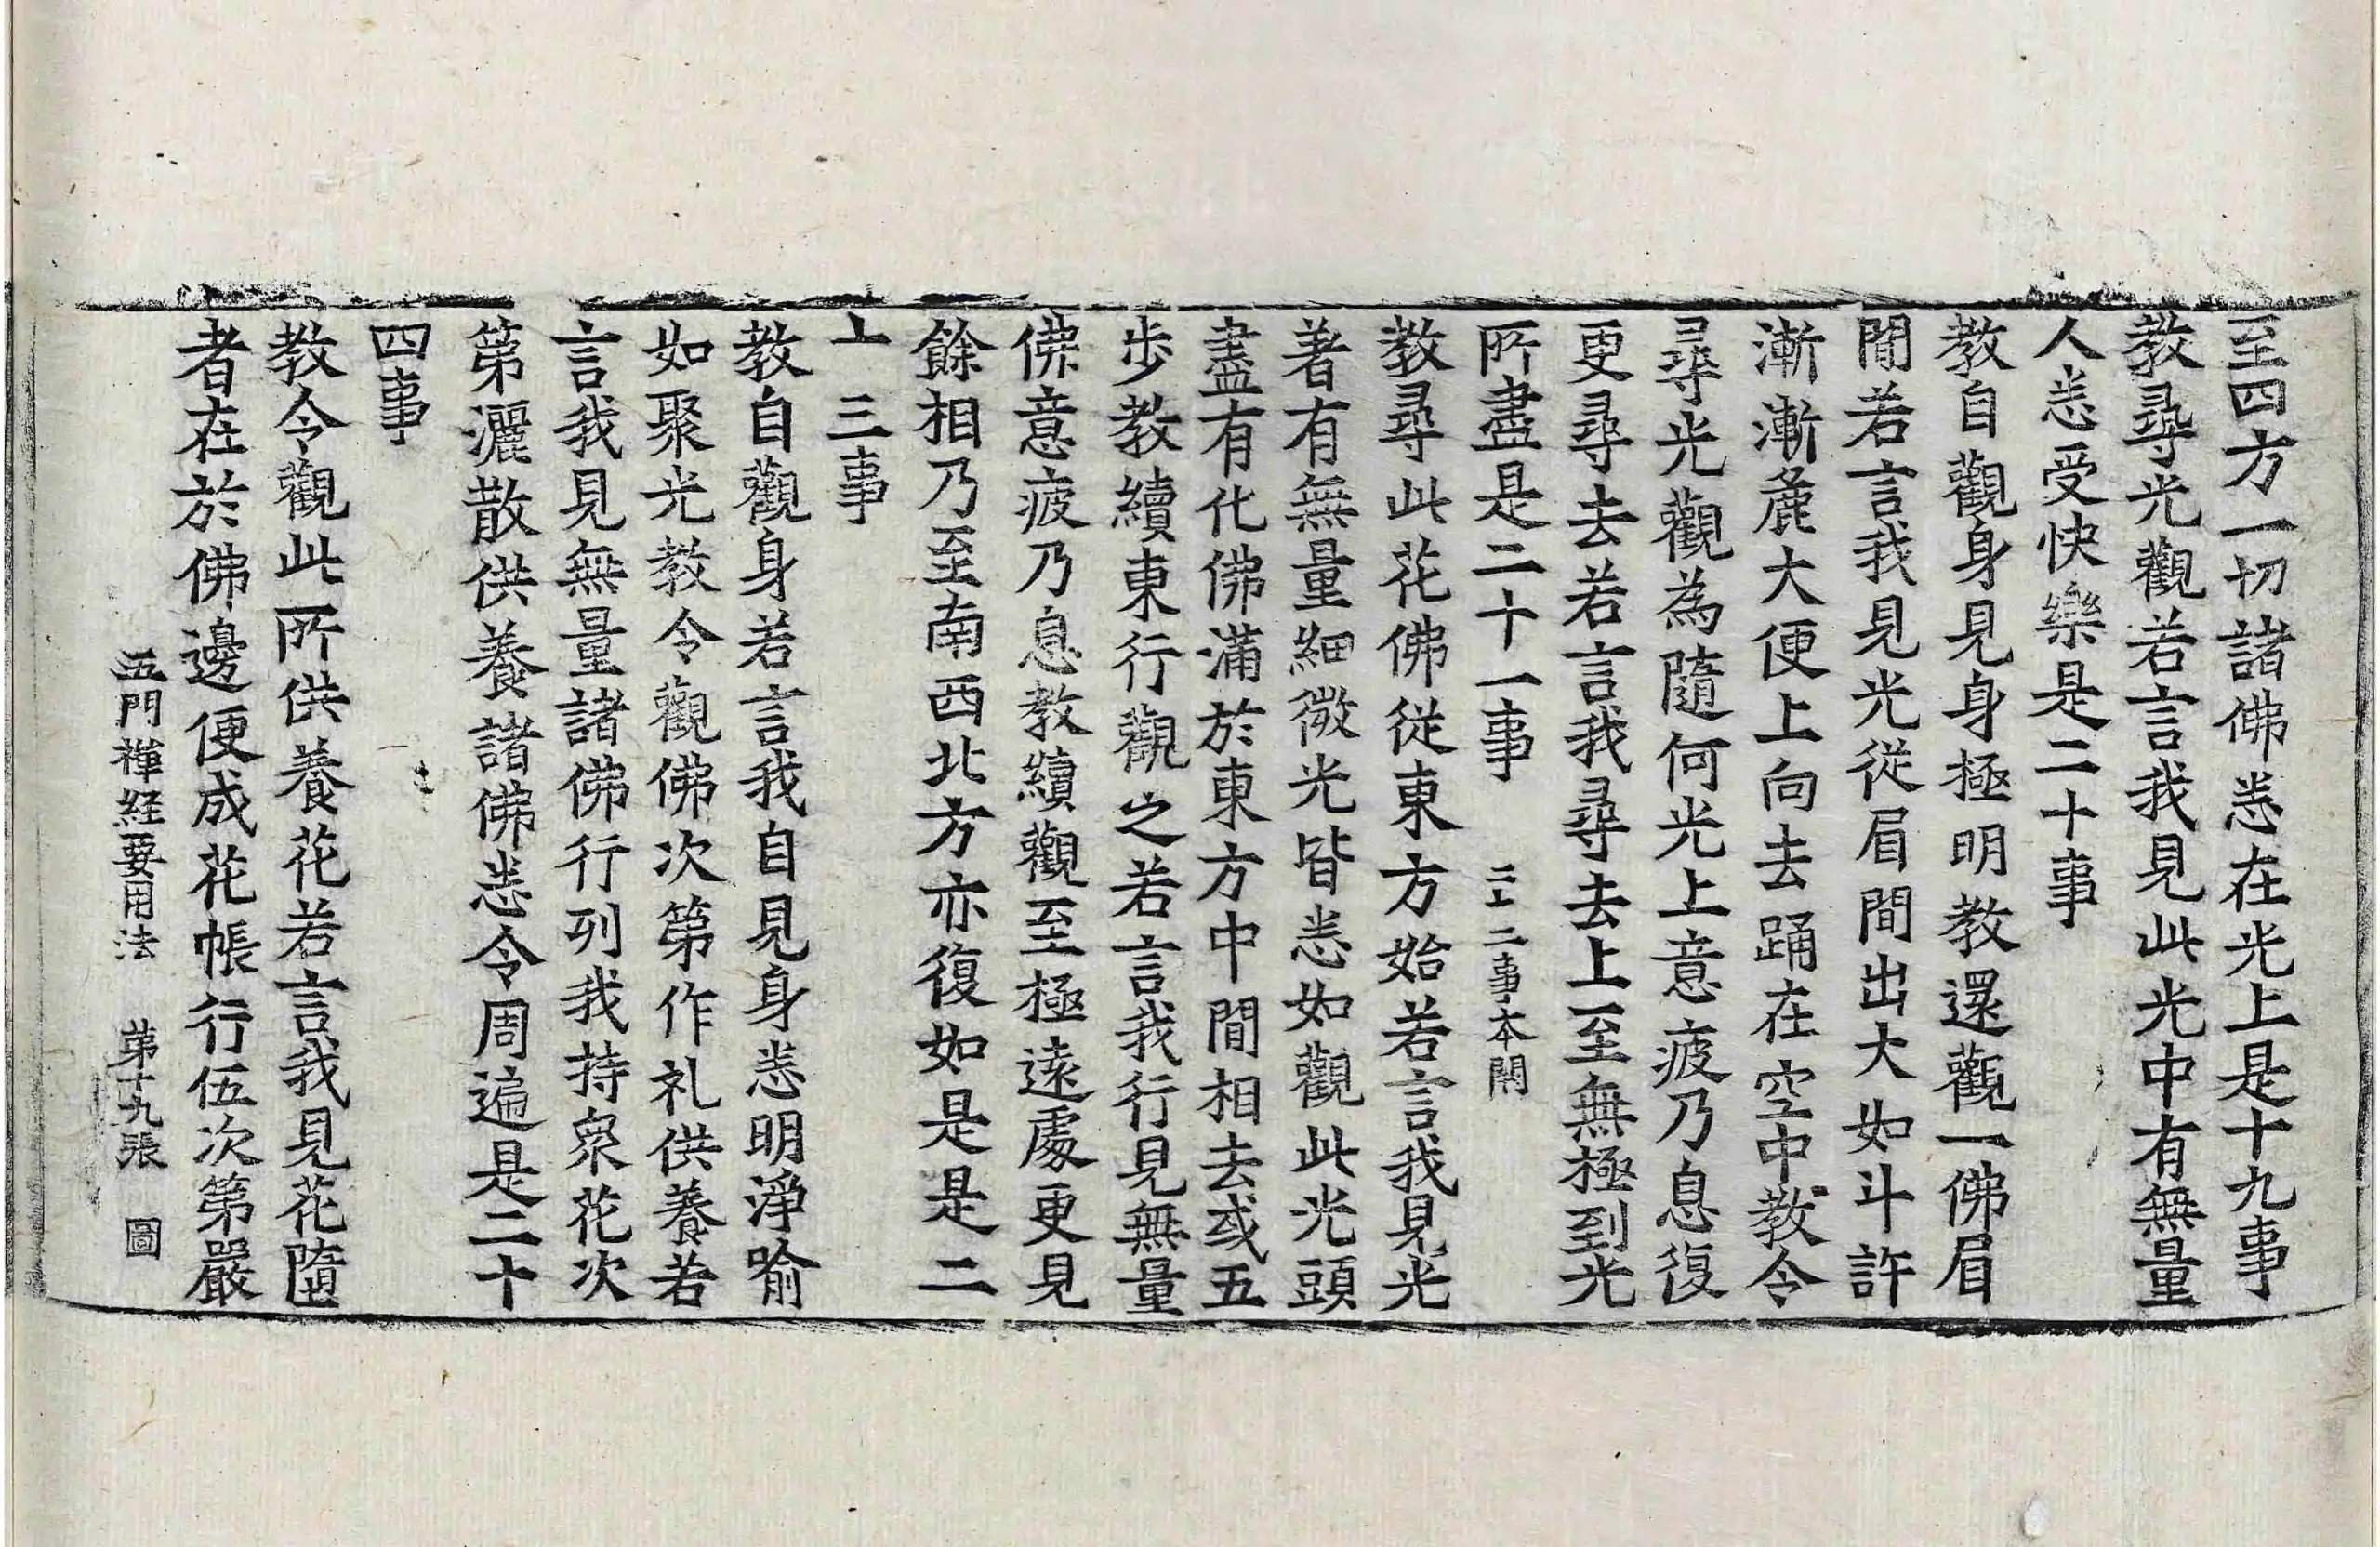 至四方一切諸佛悉在光上是十九事
教尋光觀若言我見此光中有無量
人悉受快樂是二十事
教自觀身見身極明教還觀一佛眉
間若言我見光從眉間出大如斗許
漸漸麁大便上向去踊在空中教令
尋光觀為隨何光上意疲乃息復
更尋去若言我尋去上至無極到光
所盡是二十一事 二十二事本闕
教尋此花佛從東方始若言我見光
著有無量細微光皆悉如觀此光頭
盡有化佛滿於東方中間相去或五
步教續東行觀之若言我行見無量
佛意疲乃息教續觀至極遠處更見
餘相乃至南西北方亦復如是是二
十三事
教自觀身若言我自見身悉明淨喻
如聚光教令觀佛次第作礼供養若
言我見無量諸佛行列我持衆花次
第灑散供養諸佛悉令周遍是二十
四事
教令觀此所供養花若言我見花墮
者在於佛邊便成花帳行伍次第嚴
五門禪経要用法 第十九張 圖